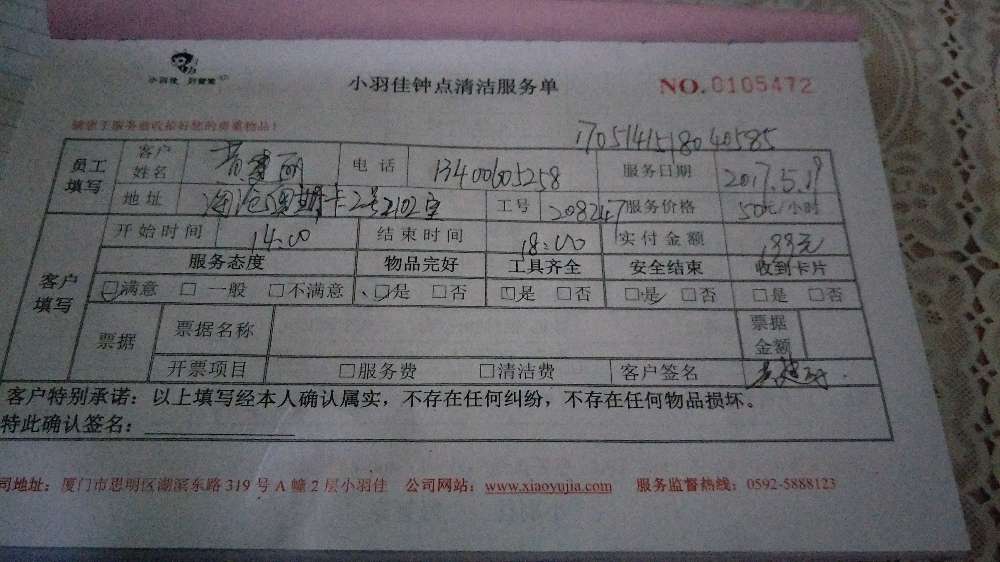 小羽佳 到管家
小羽佳钟点清洁服务单 NO.0105472
请您于服务验收拾好您的贵重物品！
170514151804 0585
员工填写 客户姓名 电话 13400605258 服务日期 2017.5.19
地址 2号2102室 工号 208247 服务价格 50元/小时
开始时间 14:00 结束时间 18:00 实付金额 199元
客户填写 服务态度 物品完好 工具齐全 安全结束 收到卡片
□满意 □一般 □不满意 □是 □否 □是 □否 □是 □否 □是 □否
票据 票据名称 票据金额
开票项目 □服务费 □清洁费 客户签名
客户特别承诺：以上填写经本人确认属实，不存在任何纠纷，不存在任何物品损坏。
特此确认签名：
司地址：厦门市思明区湖滨东路 319 号 A 幢 2 层小羽佳 公司网站：www.xiaoyujia.com 服务监督热线：0592-5888123